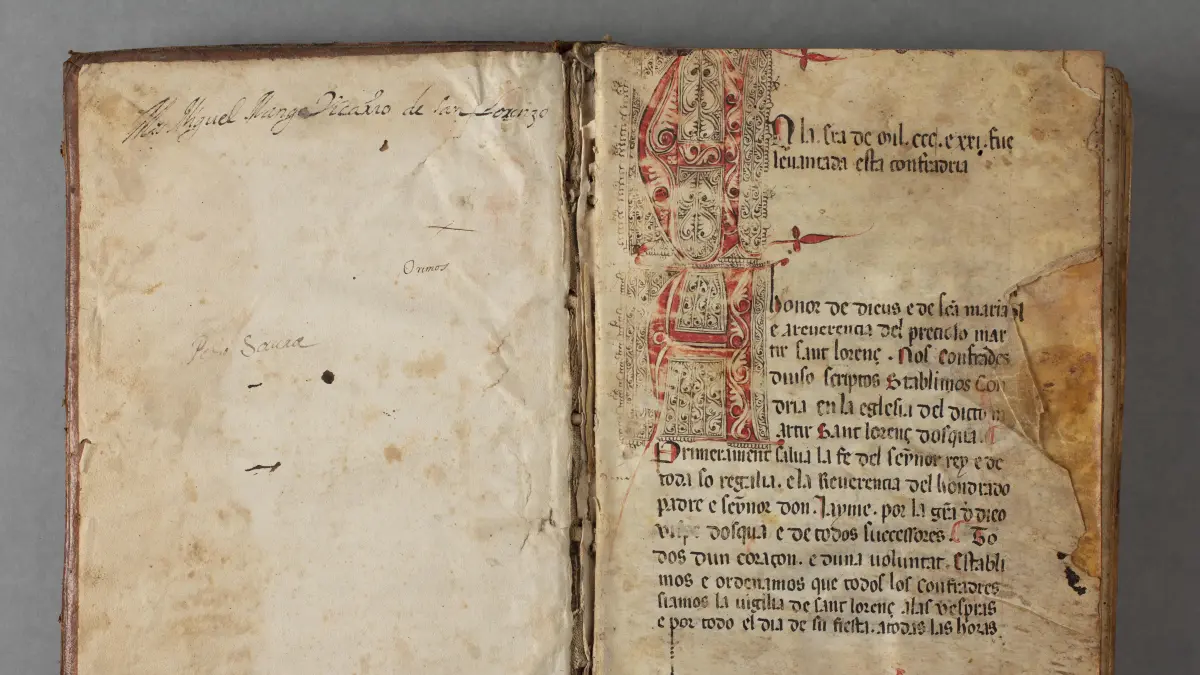 Miguel Monge Vicario de San Lorenzo
Oximos
la Era de mil. ccc. e xxj. fue
leuantada esta confradria
honor de dieus e de scã maria
e areuerencia del precioso mar
tir sant lorenç. Nos confrades
diuso scriptos Stablimos Con
dria en la eglesia del dicto m
artir Sant lorenç dosqua.
Primerament salua la fe del seynor rey e de
toda so regalia. e la Reuerencia del hondrado
padre e seynor don. Jayme. por la grã d dieo
uispe dosqua e de todos successores. To
dos dun coraçon. e duna uoluntat. Establi
mos e ordenamos que todos los confradres
siamos la uigilia de sant lorenç alas vespras
e por todo el dia de su fiesta. atodas las horas